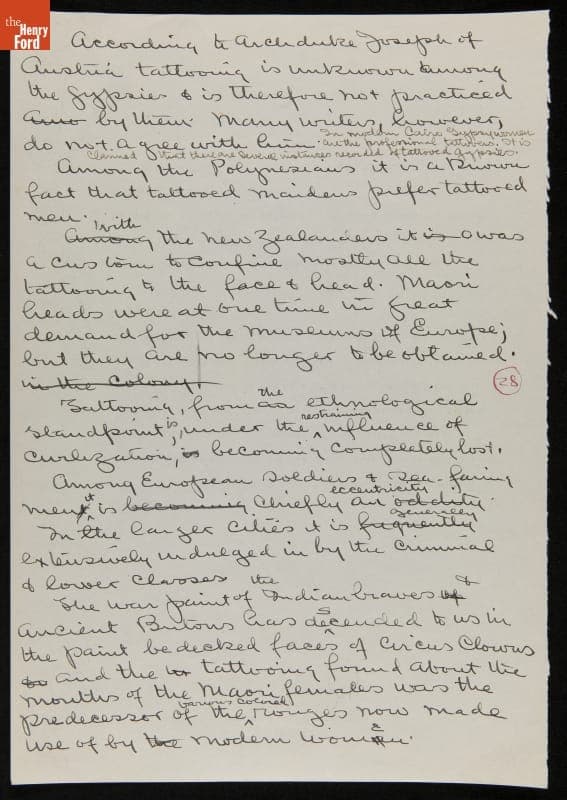 the
Henry
Ford
According to Archduke Joseph of
Austria tattooing is unknown among
the Gypsies & is therefore not practiced
by them. Many writers, however,
do not agree with him. In modern Cairo Gypsy women
are the professional tattooers. It is
claimed that there are several instances recorded of tattooed gypsies.
Among the Polynesians it is a known
fact that tattooed maidens prefer tattooed
men.
with
Among the New Zealanders it is was
a custom to confine mostly all the
tattooing to the face & head. Maori
heads were at one time in great
demand for the museums of Europe;
but they are no longer to be obtained.
in the Colony.
28
the
Tattooing, from an ethnological
is restraining
standpoint, under the influence of
civilization, is becoming completely lost.
Among European soldiers & sea-faring
it eccentricity
men is becoming chiefly an oddity.
generally
In the larger cities it is frequently
extensively indulged in by the criminal
& lower classes
the &
The war paint of Indian braves of
ancient Britons has descended to us in
the paint bedecked faces of Circus Clowns
and the tattooing found about the
mouths of the Maori females was the
various colored
predecessor of the rouges now made
use of by the modern women.